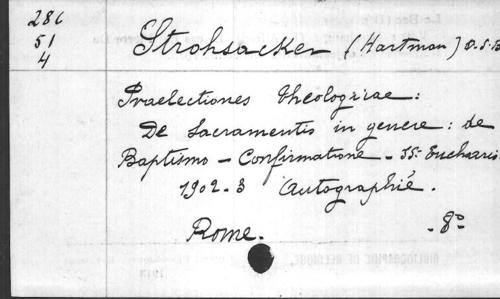 286
51
4
Strohsacker (Hartman) O.S.B
Praelectiones theologicae:
De Sacramentis in genere: de
Baptismo - Confirmatione - SS. Eucharis
1902-3 Autographié.
Rome. - 8º